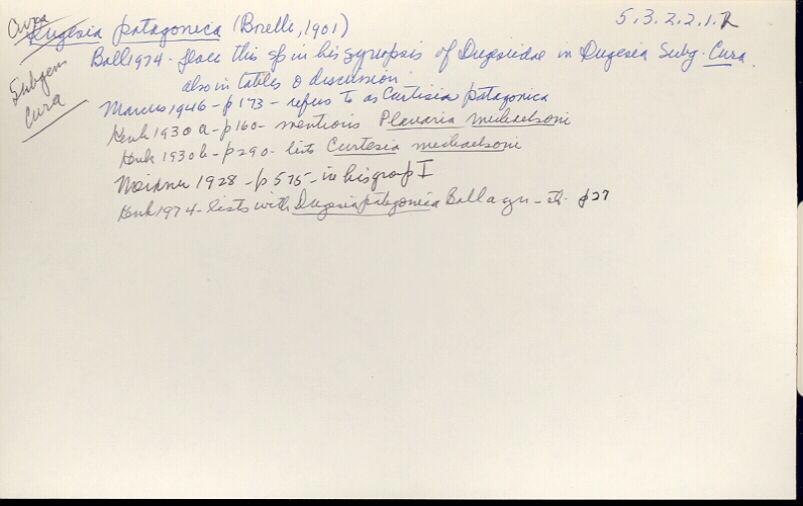 Cura
Dugesia patagonica (Borelli, 1901) 5.3.2.2.1.R
Subgen Cura
Ball 1974 - place this sp in his synopsis of Dugesiidae in Dugesia Subg. Cura.
also in tables & discussion.
Marcus 1946 - p 173 - refers to as Curtisia patagonica
Kenk 1930a - p160 - mentions Planaria michaelseni
Kenk 1930b - p290 - lists Curtisia michaelseni
Meixner 1928 - p 575 - in his group I
Kenk 1974 - lists with Dugesia patagonica Ball p 27